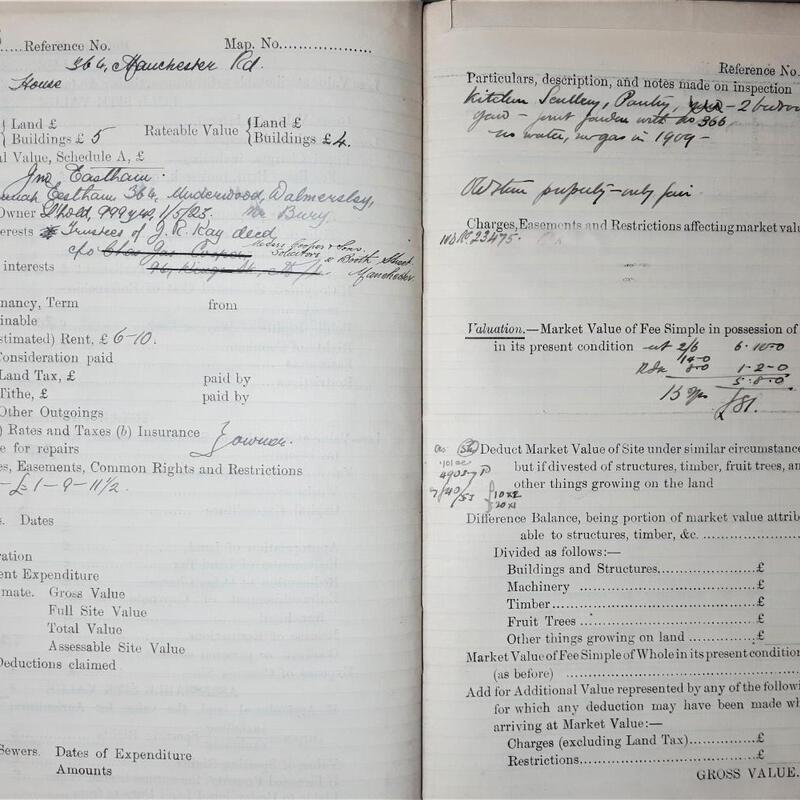 Reference No. Map. No.
364, Manchester Rd.
House
Land £
Buildings £ 5
Rateable Value
Land £
Buildings £ 4.
al Value, Schedule A, £
Jno Eastham.
Eastham 364, Underwood, Walmersley,
Owner Lhold, 999 yrs, 1/5/23. Nr Bury.
erests Trustees of J. R. Kay decd,
c/o Chas Jas Cooper Messrs Cooper & Sons.
Solicitors Booth Street
interests Manchester.
nancy, Term from
inable
stimated) Rent, £ 6-10.
Consideration paid
Land Tax, £ paid by
Tithe, £ paid by
Other Outgoings
) Rates and Taxes (b) Insurance
e for repairs } owner.
es, Easements, Common Rights and Restrictions
- £1-9-11½.
s. Dates
ration
ent Expenditure
mate. Gross Value
Full Site Value
Total Value
Assessable Site Value
Deductions claimed
Sewers. Dates of Expenditure
Amounts
Reference No.
Particulars, description, and notes made on inspection
Kitchen Scullery, Pantry, - 2 bedroom
- joint garden with no 366
no water, no gas in 1909 -
Old stone property - only fair.
Charges, Easements and Restrictions affecting market valu
23475.
Valuation.—Market Value of Fee Simple in possession of
in its present condition at 2/6 6.10.0
14-0
8-0 1-2-0
5.8.0
15 yrs £81.
Deduct Market Value of Site under similar circumstance
but if divested of structures, timber, fruit trees, an
other things growing on the land
4903
7/40/53
10 x 2
20 x 1
Difference Balance, being portion of market value attrib
able to structures, timber, &c.
Divided as follows:—
Buildings and Structures £
Machinery £
Timber £
Fruit Trees £
Other things growing on land £
Market Value of Fee Simple of Whole in its present condition
(as before)
Add for Additional Value represented by any of the followi
for which any deduction may have been made wh
arriving at Market Value:—
Charges (excluding Land Tax) £
Restrictions £
GROSS VALUE.